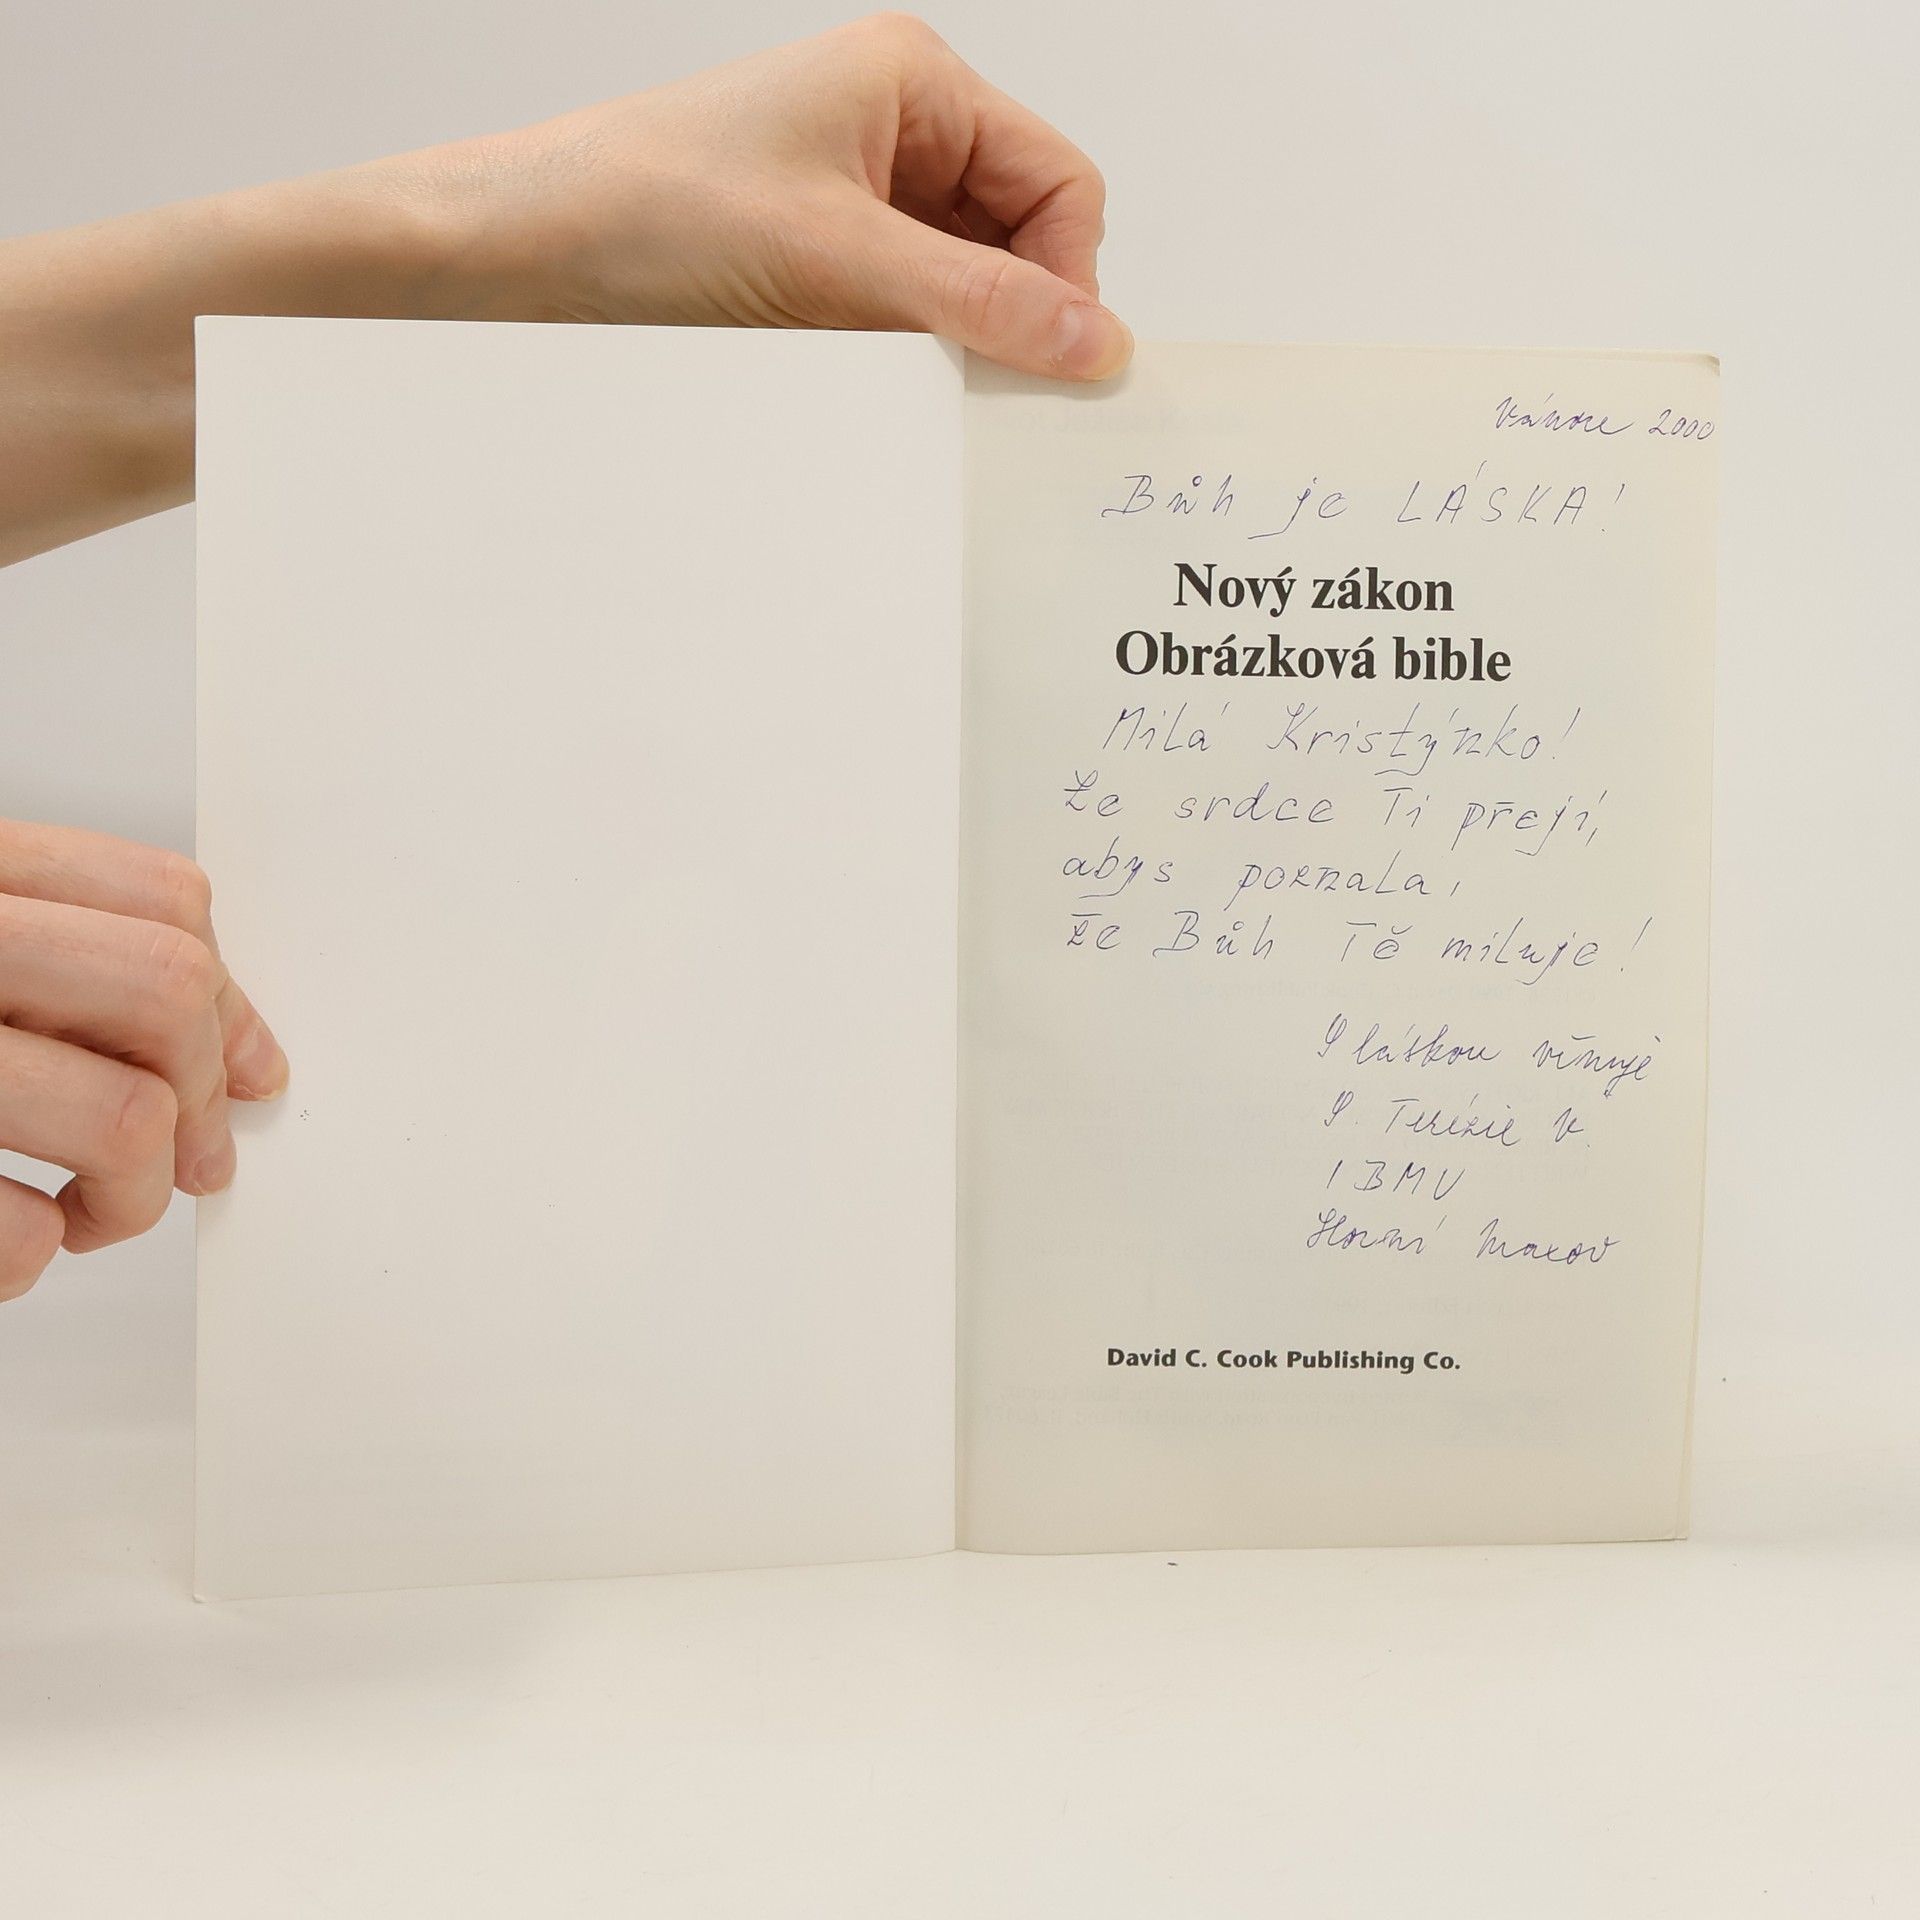 Vánoce 2000
Bůh je LÁSKA!
Nový zákon
Obrázková bible
Milá Kristýnko!
Ze srdce Ti přeji,
abys poznala,
že Bůh Tě miluje!
S láskou věnuje
S. Terézie V.
IBMV
Horní Maxov
David C. Cook Publishing Co.